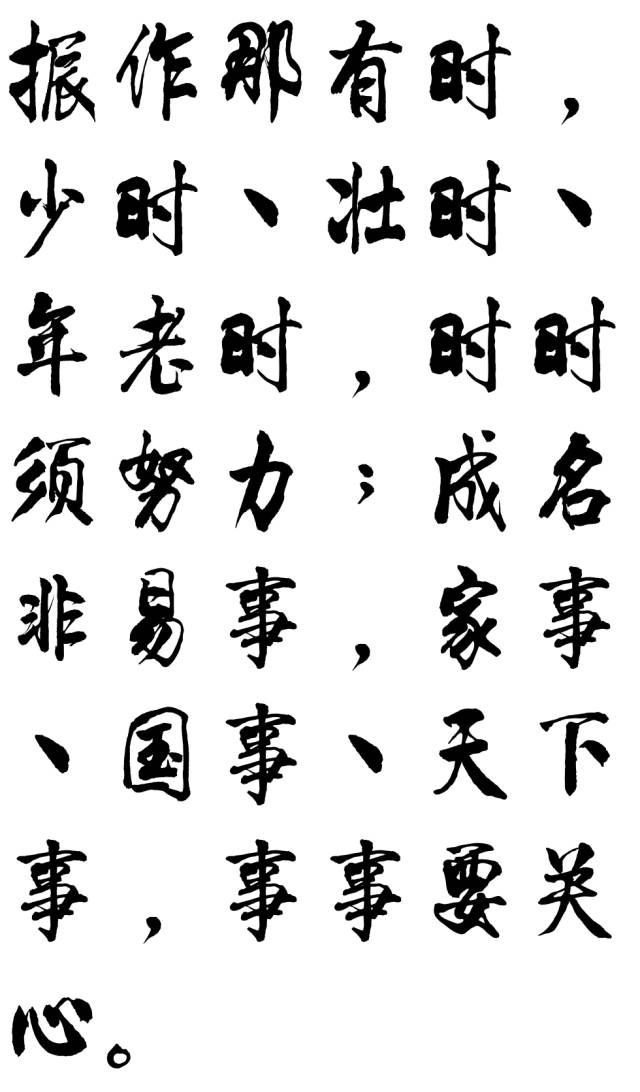 振作那有时，
少时、壮时、
年老时，时时
须努力；成名
非易事，家事
、国事、天下
事，事事要关
心。